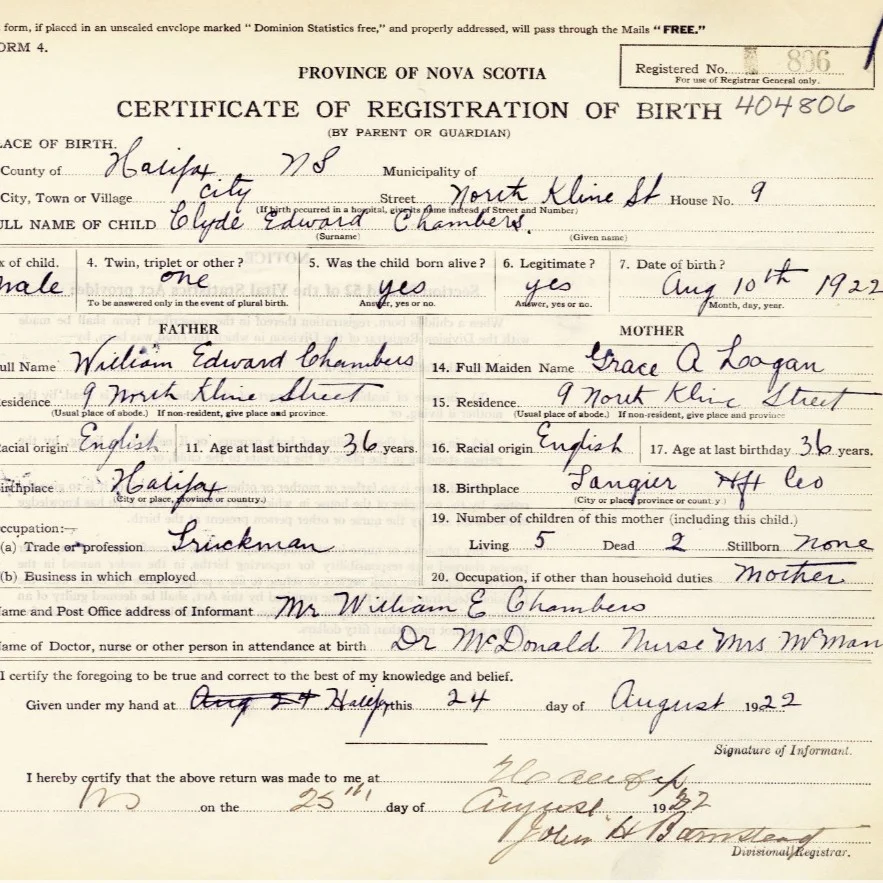 form, if placed in an unsealed envelope marked "Dominion Statistics free," and properly addressed, will pass through the Mails "FREE."
ORM 4.
Registered No. 806
For use of Registrar General only.
PROVINCE OF NOVA SCOTIA
CERTIFICATE OF REGISTRATION OF BIRTH 404806
(BY PARENT OR GUARDIAN)
LACE OF BIRTH.
County of Halifax NS Municipality of
City, Town or Village City Street North Kline St House No. 9
(If birth occurred in a hospital, give its name instead of Street and Number)
ULL NAME OF CHILD Clyde Edward Chambers.
(Surname) (Given name)
x of child. 4. Twin, triplet or other? 5. Was the child born alive? 6. Legitimate? 7. Date of birth?
male one yes yes Aug 10th 1922
To be answered only in the event of plural birth. Answer, yes or no. Answer, yes or no. Month, day, year.
FATHER MOTHER
ull Name William Edward Chambers 14. Full Maiden Name Grace A Logan
esidence 9 North Kline Street 15. Residence 9 North Kline Street
(Usual place of abode.) If non-resident, give place and province. (Usual place of abode.) If non-resident, give place and province
Racial origin English 11. Age at last birthday 36 years. 16. Racial origin English 17. Age at last birthday 36 years.
irthplace Halifax 18. Birthplace Tangier Hfx Co
(City or place, province or country.) (City or place, province or country.)
ccupation: 19. Number of children of this mother (including this child.)
(a) Trade or profession Truckman Living 5 Dead 2 Stillborn none
(b) Business in which employed 20. Occupation, if other than household duties Mother
Name and Post Office address of Informant Mr William E Chambers
Name of Doctor, nurse or other person in attendance at birth Dr McDonald Nurse Mrs McMan
I certify the foregoing to be true and correct to the best of my knowledge and belief.
Given under my hand at Aug 24 Halifx this 24 day of August 1922
Signature of Informant.
I hereby certify that the above return was made to me at Halifax
NS on the 25th day of August 1922
John H Barnstead
Divisional Registrar.